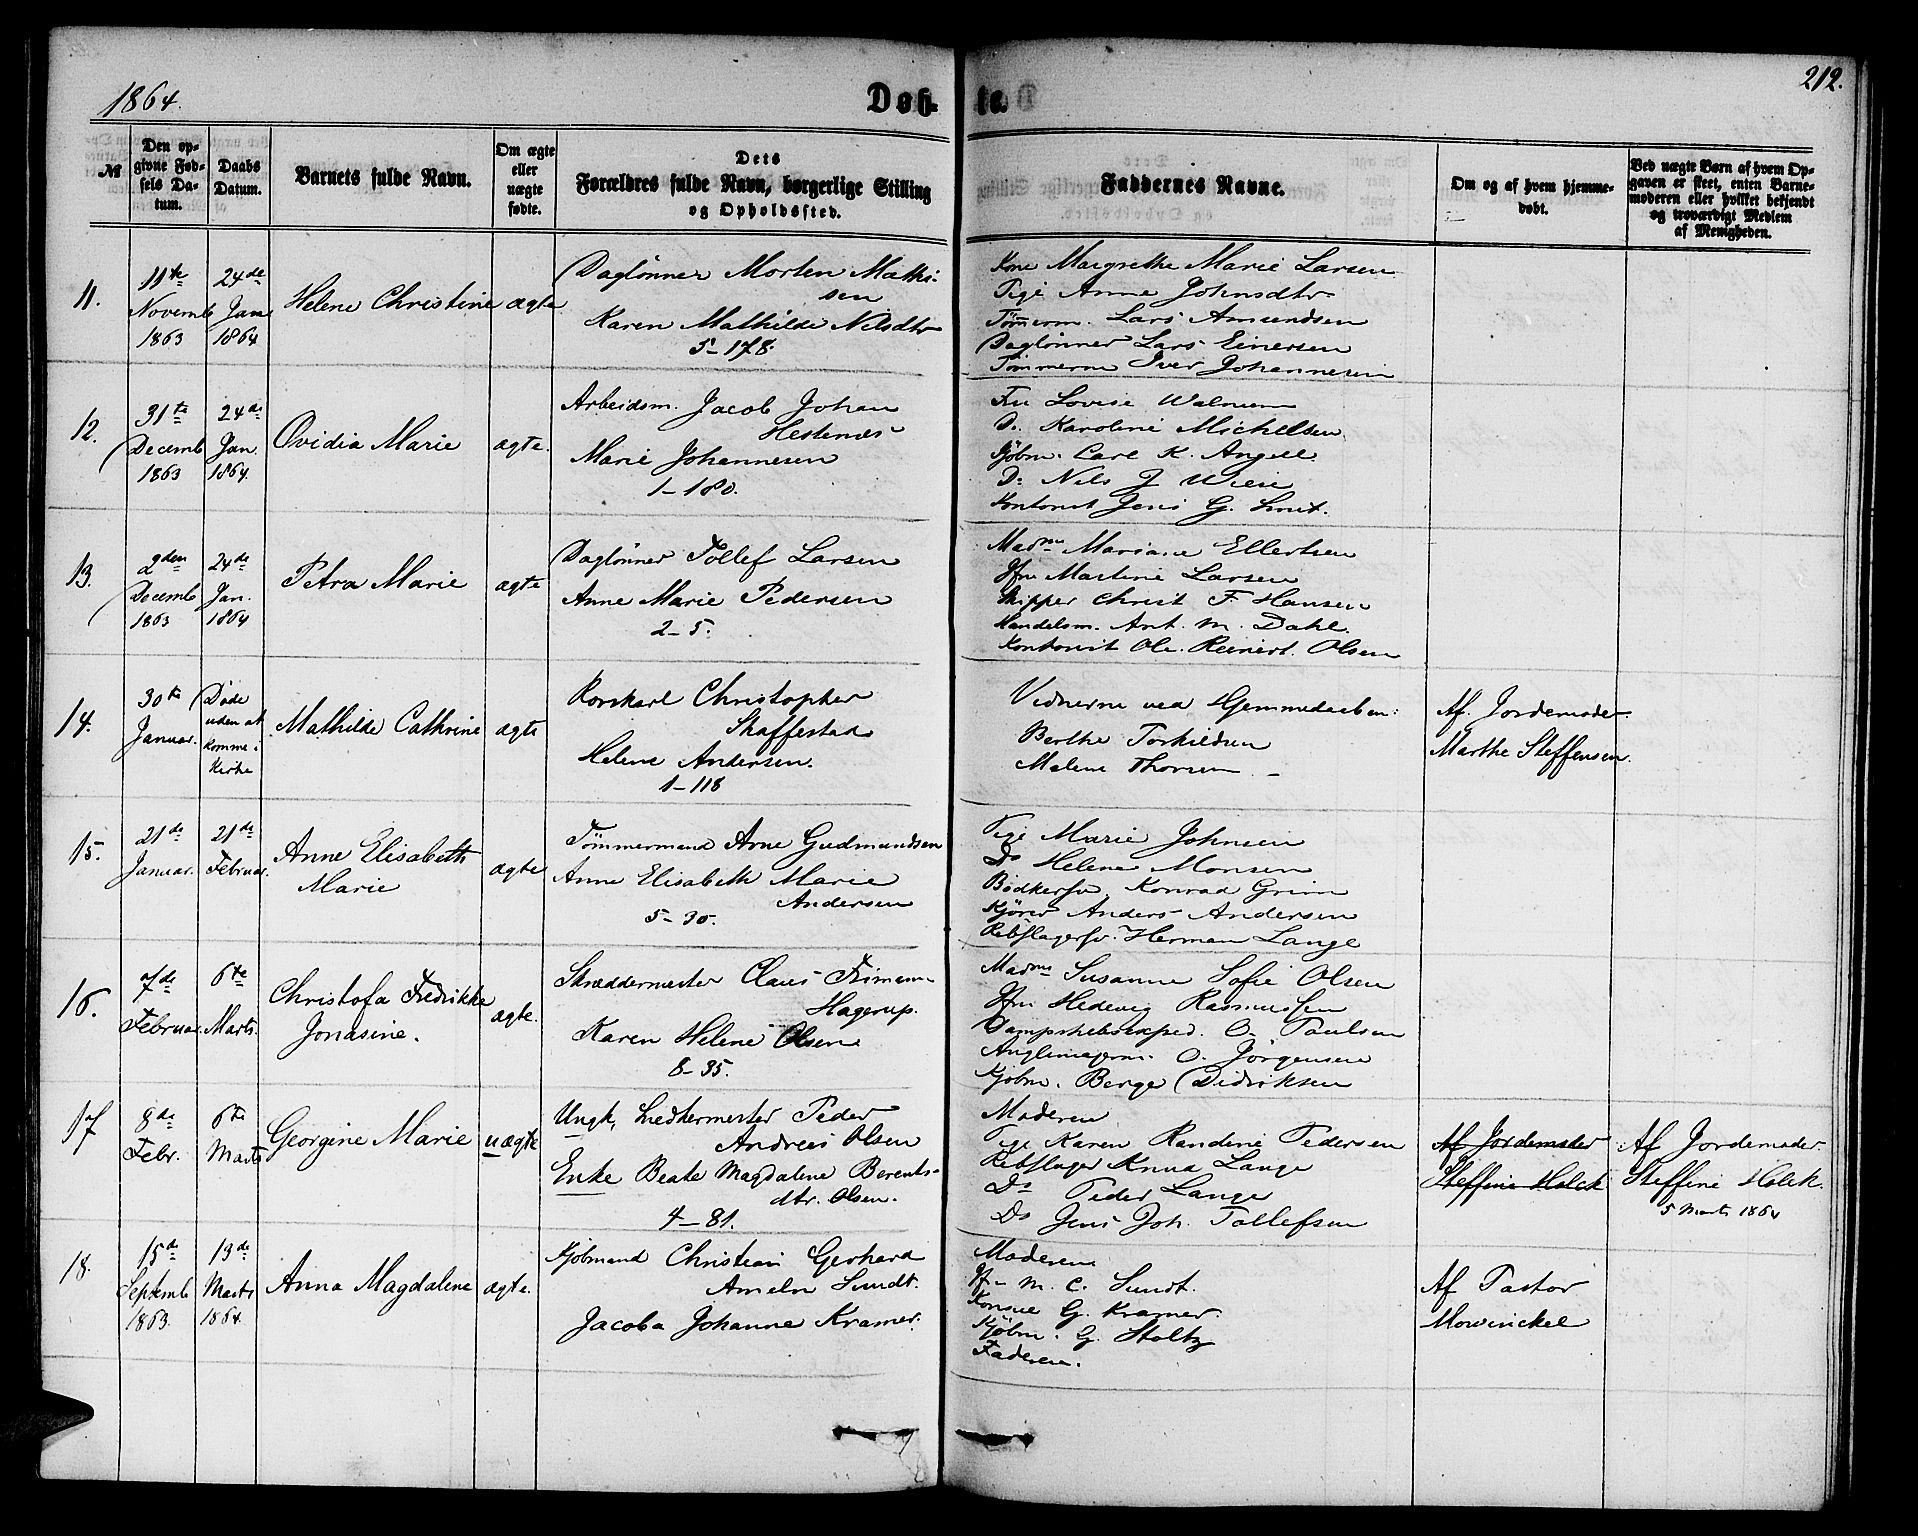 1864.
Døb-
te.
212.
№
Den op-
givne Fød-
sels Da-
tum.
Daabs
Datum.
Barnets fulde Navn.
Om ægte
eller
uægte
fødte.
Dets
Forældres fulde Navn, borgerlige Stilling
og Opholdssted.
Faddernes Navne.
Om og af hvem hjemme-
døbt.
Ved uægte Børn af hvem Op-
gaven er skeet, enten Barne-
moderen eller hvilket bekjendt
og troværdigt Medlem
af Menigheden.
11.
11te
Novemb
1863
24de
Jan
1864
Helene Christine
ægte
Daglønner Morten Mathi-
sen
Karen Mathilde Nilsdtr
5-178.
Kone Margrethe Marie Larsen
Pige Anne Johnsdtr
Tømmerm. Lars Amundsen
Daglønner Lars Einersen
Tømmerm Iver Johannesen
12.
31te
Decemb
1863
24de
Jan.
1864.
Ovidia Marie
ægte.
Arbeidsm. Jacob Johan
Hestenes
Marie Johannesen
1-180.
Fru Lovise Walnum
Do. Karoline Michelsen
Kjøbm. Carl K. Angell.
Do Nils J Wiese
Kontorist Jens G. Smit.
13.
2den
Decemb
1863
24de
Jan.
1864
Petra Marie
ægte
Daglønner Tollef Larsen
Anne Marie Pedersen
2-5.
Madme Mariane Ellertsen
Jfru Martine Larsen
Skipper Christ F. Hansen
Handelsm. Ant. M. Dahl.
Kontorist Ole Reinert. Olsen
14.
30te
Januar.
Døde
uden at
komme i
Kirke
Mathilde Cathrine
ægte
Rorskarl Christopher
Skaffestad
Helene Andersen.
1-118
Vidnerne ved Hjemmedaaben:
Berthe Torkildsen
Malene Thorsen
Af. Jordemoder
Marthe Steffensen.
15.
21de
Januar.
21de
Februar.
Anne Elisabeth
Marie
ægte
Tømmermand Arne Gudmundsen
Anne Elisabeth Marie
Andersen
5-30.
Pige Marie Johnsen
Do Helene Monsen
Bødkersv. Konrad Grim
Kjører Anders Andersen
Rebslagersv. Herman Lange
16.
7de
Februar.
6te
Marts.
Christofa Fredrikke
Jonasine.
ægte.
Skræddermester Claus Friman
Hagerup.
Karen Helene Olsen
8-35.
Madme Susanne Sofie Olsen
Jfru Hedevig Rasmussen
Dampskibsexped. O. Paulsen
O. Jørgensen
Kjøbm. Berge Didriksen
17
8de
Febr.
6te
Marts
Georgine Marie
uægte
Ungk. Snedkermester Peder
Andreas Olsen
Enke Beate Magdalene Berents-
dtr. Olsen.
4-81.
Moderen
Pige Karen Randine Pedersen
Rebslager Knud Lange
Do Peder Lange
Do Jens Joh. Tollefsen
Af Jordemoder
Steffine Holck
Af Jordemoder
Steffine Holck.
5 Marts 1864
18.
15de
Septemb
1863.
13de
Marts
1864.
Anna Magdalene
ægte.
Kjøbmand Christian Gerhard
Ameln Sundt.
Jacoba Johanne Kramer.
Moderen
Jfr M. C. Sundt.
Konsul G. Kramer.
Kjøbm. G. Stoltz
Faderen.
Af Pastor
Mowinckel